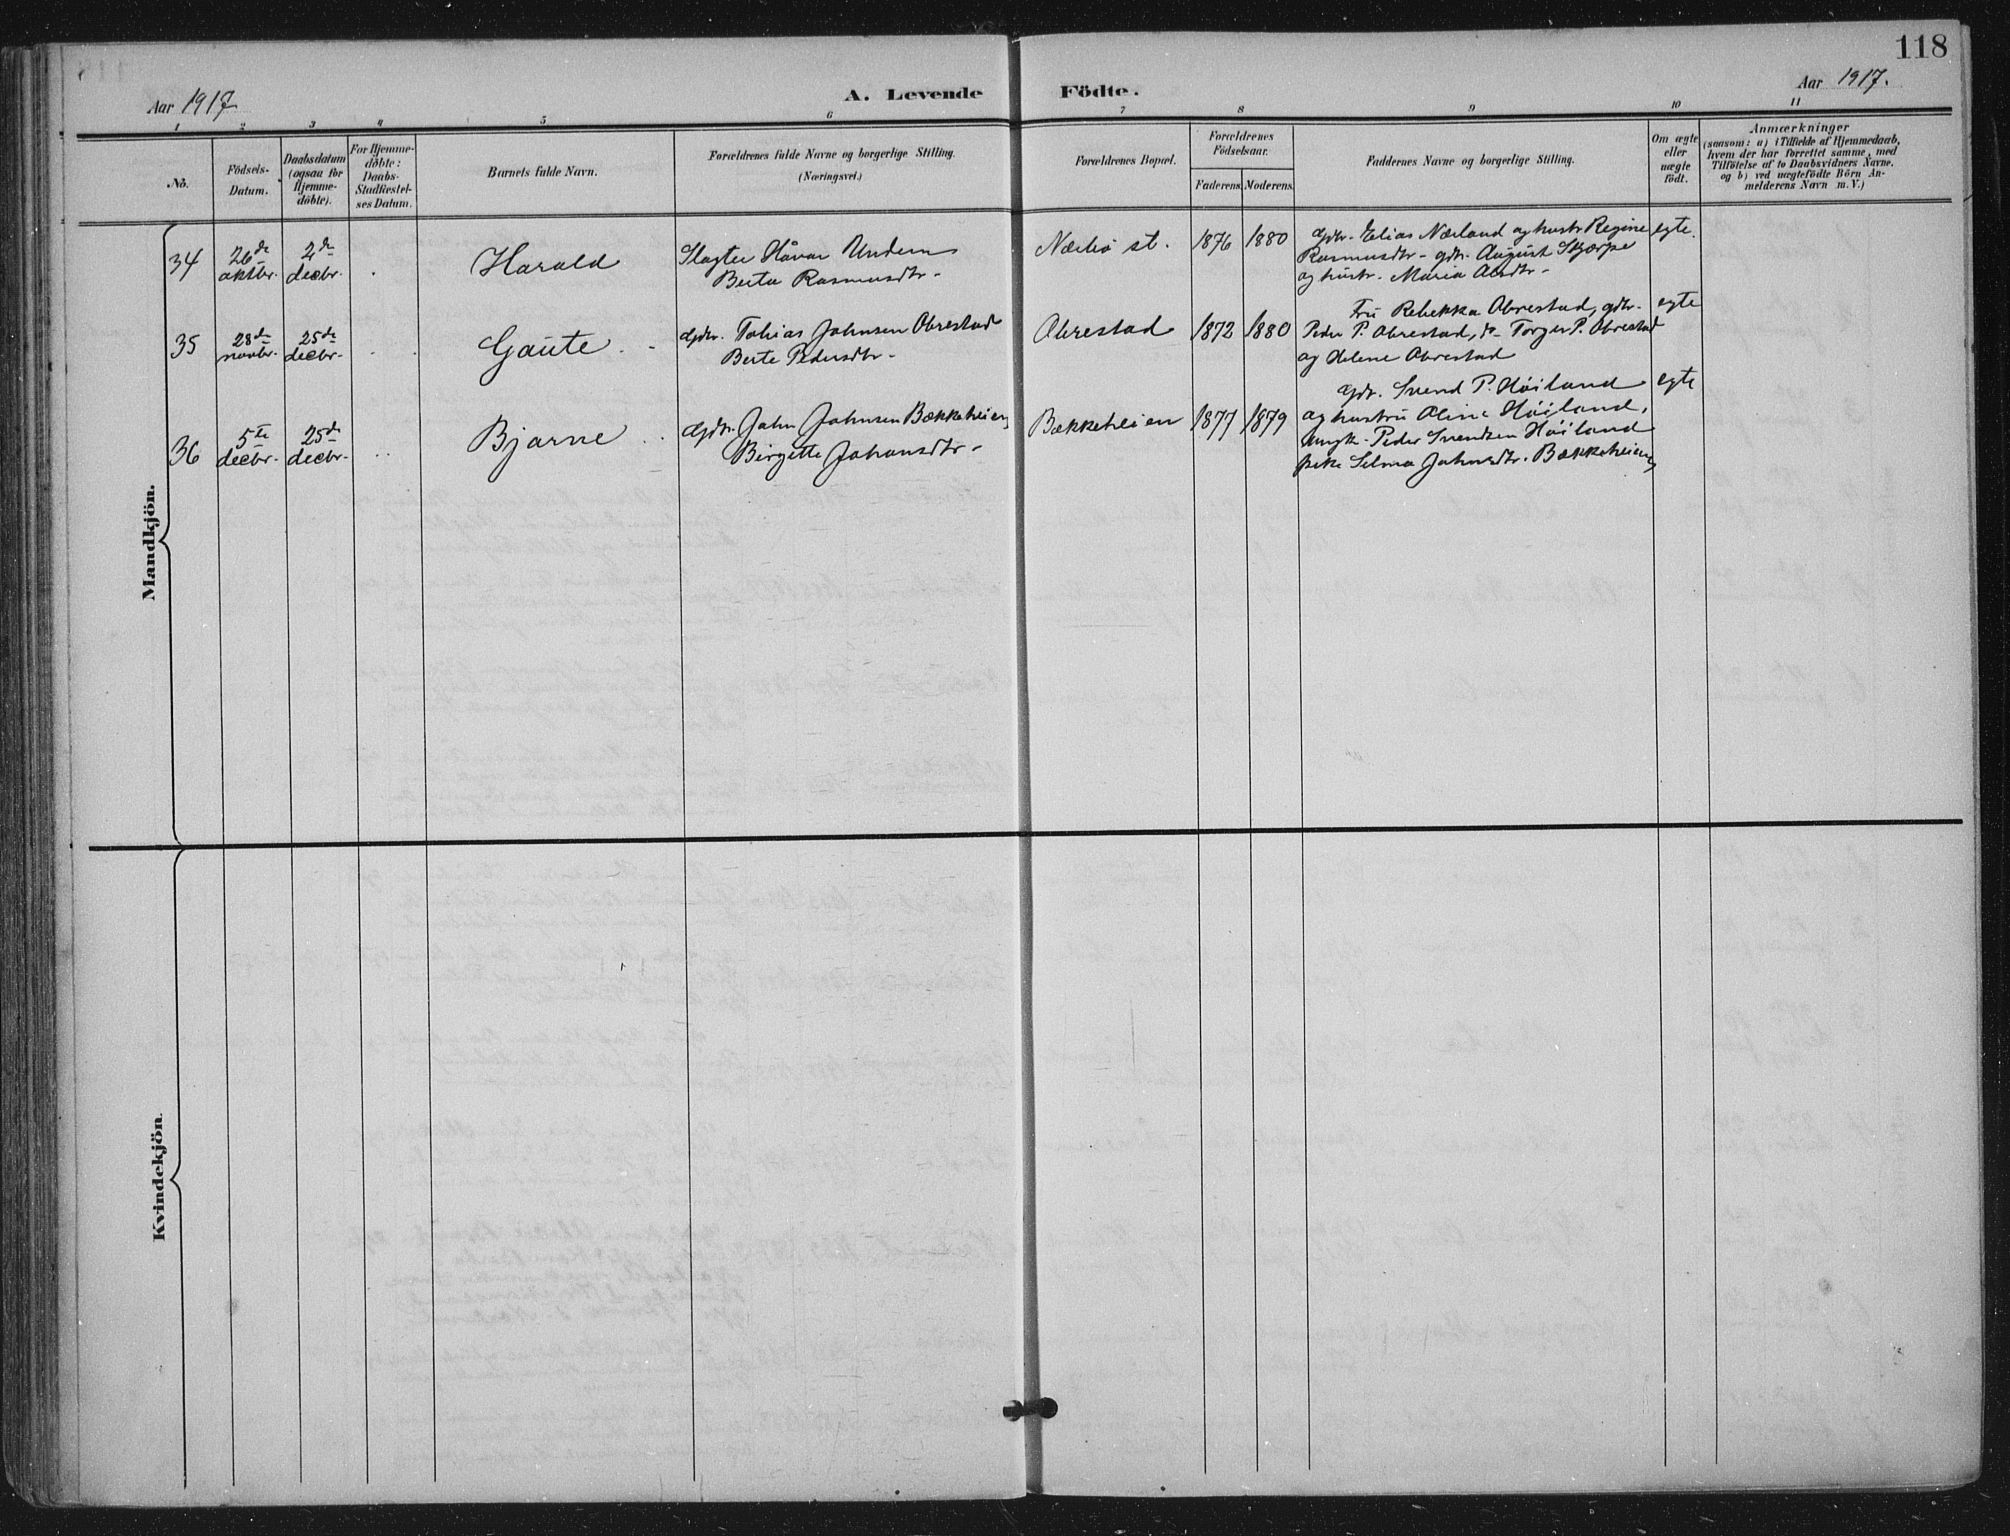 118
Aar 1917
A. Levende Födte.
Aar 1917.
1 2 3 4 5 6 7 8 9 10 11
No.
Födsels-
Datum.
Daabsdatum
(ogsaa for
Hjemme-
döbte).
For Hjemme-
döbte:
Daabs-
Stadfæstel-
ses Datum.
Barnets fulde Navn.
Forældrenes fulde Navne og borgerlige Stilling.
(Næringsvei.)
Forældrenes Bopæl.
Forældrenes
Födselsaar.
Faderens. Moderens.
Faddernes Navne og borgerlige Stilling.
Om ægte
eller
uægte
födt.
Anmærkninger
(saasom: a) i Tilfælde af Hjemmedaab,
hvem der har forrettet samme, med
Tilföielse af to Daabsvidners Navne,
og b) ved uægtefödte Börn An-
melderens Navn m. V.)
Mandkjön.
34
26de
oktbr.
2de
decbr.
Harald
Slagter Håvar Undem
Berta Rasmusdtr
Nærbø st.
1876 1880
Gdbr. Elias Nærland og hustr Regine
Rasmusdtr - gdbr. August Skjærpe
og hustr. Maria Aadtr
egte.
35
28de
novbr.
25de
decbr.
Gaute
Gdbr. Tobias Johnsen Obrestad
Berte Pedersdtr
Obrestad
1872 1880
Fru Rebekka Obrestad, gdbr.
Peder P. Obrestad, do Torger P. Obrestad
og Helene Obrestad
egte
36
5te
decbr.
25de
decbr.
Bjarne
Gdbr. John Johnsen Bækkeheien
Birgitte Johansdtr
Bækkeheien
1877 1879
Gdbr. Svend P. Høiland
og hustru Oline Høiland,
ungk. Peder Svendsen Høiland
pike Selma Johnsdtr. Bækkeheien
egte
Kvindekjön.